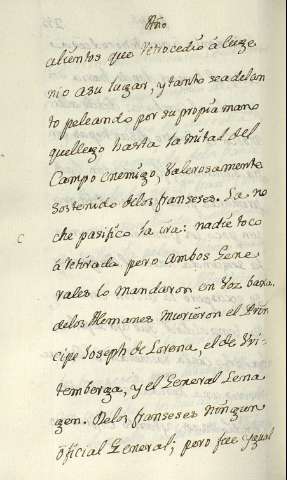 Año
alientos que retrocedió á Euge
nio a su lugar, y tanto se adelan
to peleando por su propia mano
que llego hasta la mitad del
Campo enemigo, valerosamente
sostenido de los franseses. La no
che pasifico la ira: nadie toco
á retirada pero ambos Gene
rales lo mandaron en voz baxa.
de los Alemanes murieron el Prin
cipe Joseph de Lorena, el de Vri-
temberga, y el General Lena
gen. De los franseses ningun
oficial General; pero fue ygual